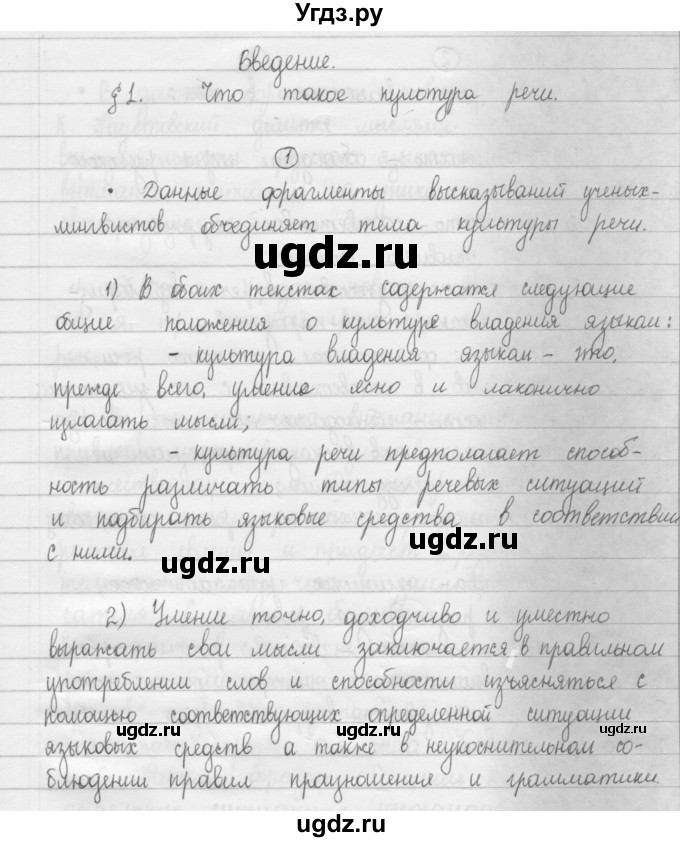 Угдз.ру
Введение.
§ 1. Что такое культура речи.
1
• Данные фрагменты высказываний ученых-
лингвистов объединяет тема культуры речи.
ugdz.ru
1) В обоих текстах содержатся следующие
общие положения о культуре владения языком:
- культура владения языком - это,
прежде всего, умение ясно и лаконично
излагать мысли;
- культура речи предполагает способ-
ность различать типы речевых ситуаций
и подбирать языковые средства в соответствии
с ними.
ugdz.ru
ugdz.ru
2) Умение точно, доходчиво и уместно
выражать свои мысли заключается в правильном
употреблении слов и способности изъясняться с
помощью соответствующих определенной ситуации
ugdz.ru
ugdz.ru
ugdz.ru
языковых средств а также в неукоснительном со-
блюдении правил произношения и грамматики.
ugdz.ru